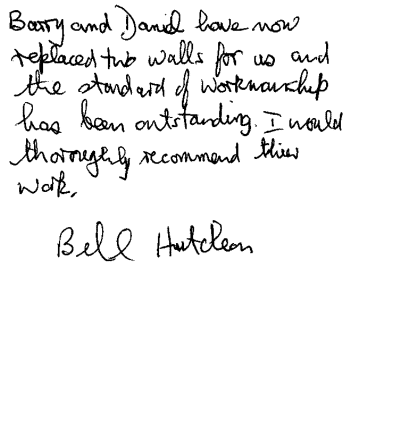 Barry and Daniel have now
replaced two walls for us and
the standard of workmanship
has been outstanding. I would
thoroughly recommend their
work.
Bell